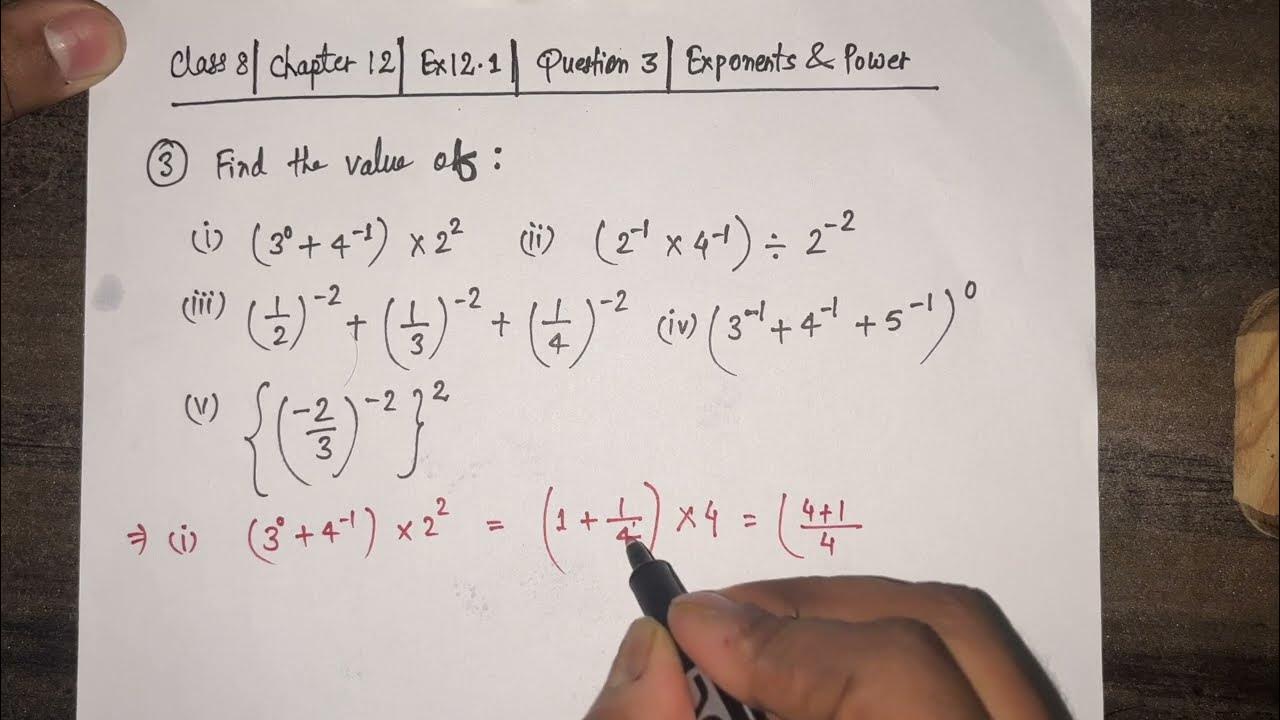 Class 8 | Chapter 12 | Ex12.1 | Question 3 | Exponents & Power
③ Find the value of :
(i) (3⁰ + 4⁻¹) × 2² (ii) (2⁻¹ × 4⁻¹) ÷ 2⁻²
(iii) (1/2)⁻² + (1/3)⁻² + (1/4)⁻² (iv) (3⁻¹ + 4⁻¹ + 5⁻¹)⁰
(v) {(-2/3)⁻²}²
⇒ (i) (3⁰ + 4⁻¹) × 2² = (1 + 1/4) × 4 = (4+1/4